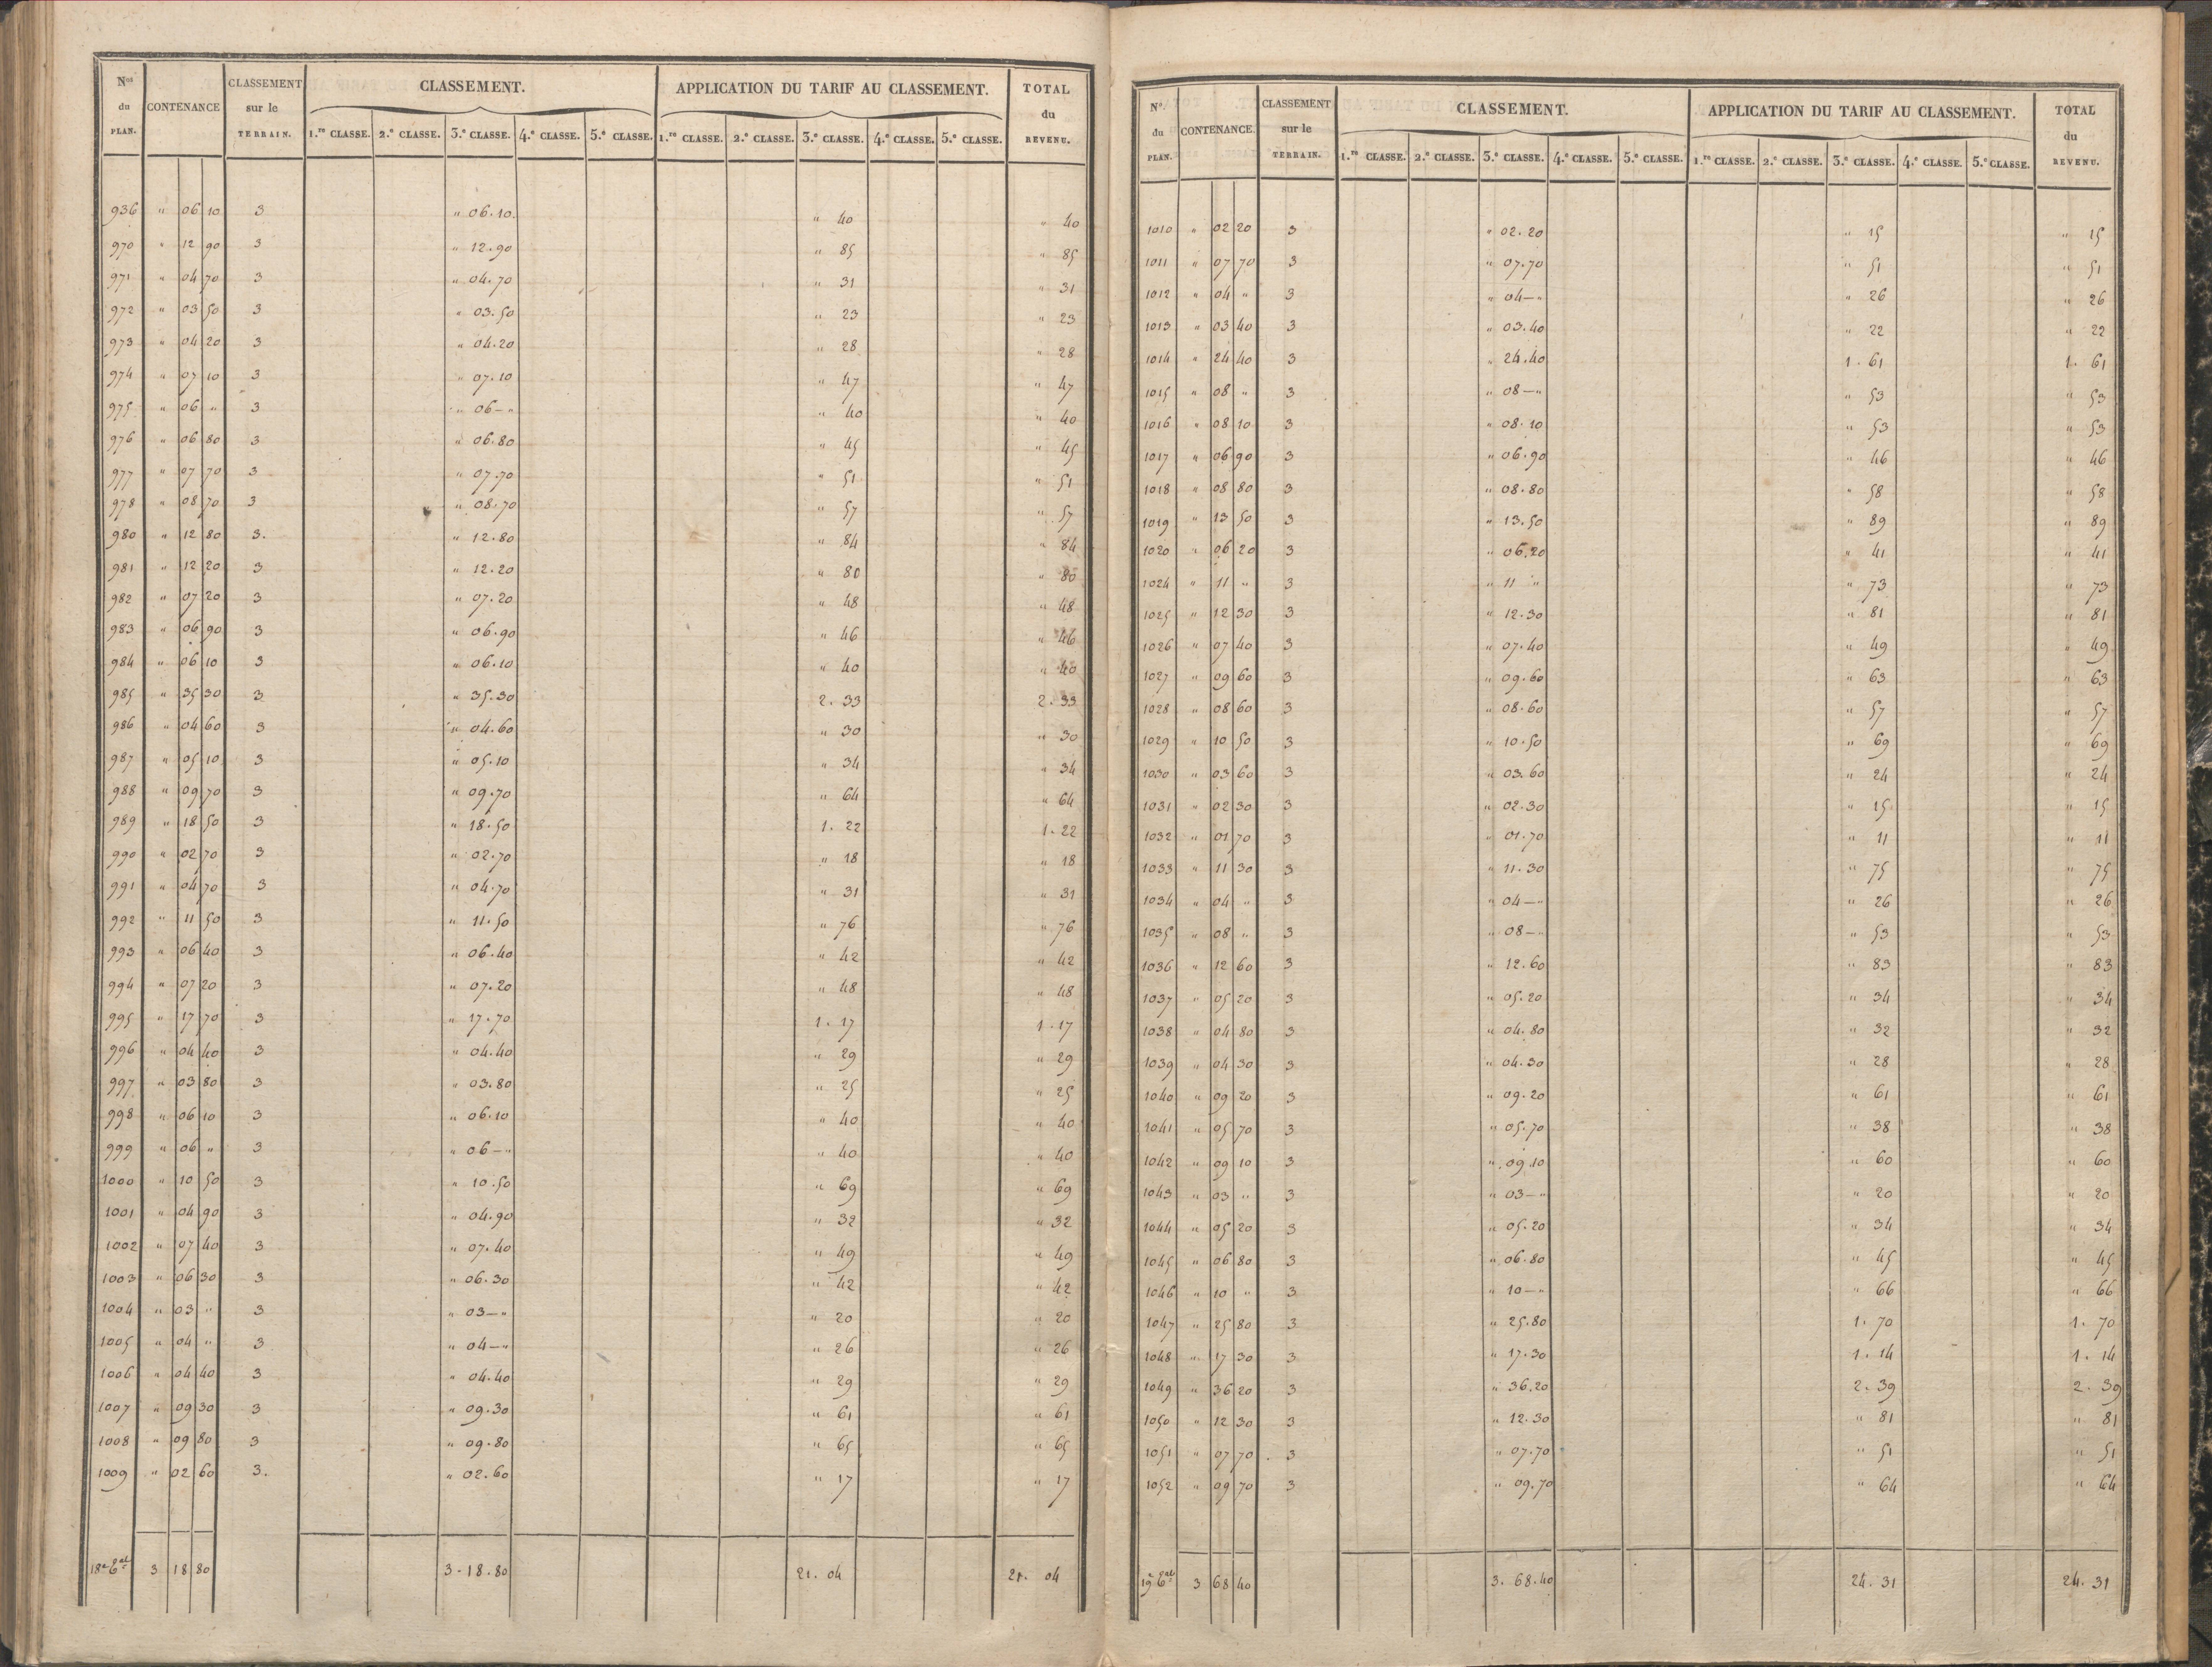 Nos du PLAN. CONTENANCE CLASSEMENT sur le TERRAIN. CLASSEMENT. APPLICATION DU TARIF AU CLASSEMENT. TOTAL du REVENU.
1.re CLASSE. 2.e CLASSE. 3.e CLASSE. 4.e CLASSE. 5.e CLASSE. 1.re CLASSE. 2.e CLASSE. 3.e CLASSE. 4.e CLASSE. 5.e CLASSE.
936 " 06 10 3 " 06.10 " 40 " 40
970 " 12 90 3 " 12.90 " 85 " 85
971 " 04 70 3 " 04.70 " 31 " 31
972 " 03 50 3 " 03.50 " 23 " 23
973 " 04 20 3 " 04.20 " 28 " 28
974 " 07 10 3 " 07.10 " 47 " 47
975 " 06 " 3 " 06—" " 40 " 40
976 " 06 80 3 " 06.80 " 45 " 45
977 " 07 70 3 " 07.70 " 51 " 51
978 " 08 70 3 " 08.70 " 57 " 57
980 " 12 80 3. " 12.80 " 84 " 84
981 " 12 20 3 " 12.20 " 80 " 80
982 " 07 20 3 " 07.20 " 48 " 48
983 " 06 90 3 " 06.90 " 46 " 46
984 " 06 10 3 " 06.10 " 40 " 40
985 " 35 30 3 " 35.30 2. 33 2. 33
986 " 04 60 3 " 04.60 " 30 " 30
987 " 05 10 3 " 05.10 " 34 " 34
988 " 09 70 3 " 09.70 " 64 " 64
989 " 18 50 3 " 18.50 1. 22 1. 22
990 " 02 70 3 " 02.70 " 18 " 18
991 " 04 70 3 " 04.70 " 31 " 31
992 " 11 50 3 " 11.50 " 76 " 76
993 " 06 40 3 " 06.40 " 42 " 42
994 " 07 20 3 " 07.20 " 48 " 48
995 " 17 70 3 " 17.70 1. 17 1. 17
996 " 04 40 3 " 04.40 " 29 " 29
997 " 03 80 3 " 03.80 " 25 " 25
998 " 06 10 3 " 06.10 " 40 " 40
999 " 06 " 3 " 06—" " 40 " 40
1000 " 10 50 3 " 10.50 " 69 " 69
1001 " 04 90 3 " 04.90 " 32 " 32
1002 " 07 40 3 " 07.40 " 49 " 49
1003 " 06 30 3 " 06.30 " 42 " 42
1004 " 03 " 3 " 03—" " 20 " 20
1005 " 04 " 3 " 04—" " 26 " 26
1006 " 04 40 3 " 04.40 " 29 " 29
1007 " 09 30 3 " 09.30 " 61 " 61
1008 " 09 80 3 " 09.80 " 65 " 65
1009 " 02 60 3. " 02.60 " 17 " 17
3 18 80 3-18.80 21. 04 21. 04
Nos du PLAN. CONTENANCE. CLASSEMENT sur le TERRAIN. CLASSEMENT. APPLICATION DU TARIF AU CLASSEMENT. TOTAL du REVENU.
1.re CLASSE. 2.e CLASSE. 3.e CLASSE. 4.e CLASSE. 5.e CLASSE. 1.re CLASSE. 2.e CLASSE. 3.e CLASSE. 4.e CLASSE. 5.e CLASSE.
1010 " 02 20 3 " 02.20 " 15 " 15
1011 " 07 70 3 " 07.70 " 51 " 51
1012 " 04 " 3 " 04—" " 26 " 26
1013 " 03 40 3 " 03.40 " 22 " 22
1014 " 24 40 3 " 24.40 1. 61 1. 61
1015 " 08 " 3 " 08—" " 53 " 53
1016 " 08 10 3 " 08.10 " 53 " 53
1017 " 06 90 3 " 06.90 " 46 " 46
1018 " 08 80 3 " 08.80 " 58 " 58
1019 " 13 50 3 " 13.50 " 89 " 89
1020 " 06 20 3 " 06.20 " 41 " 41
1024 " 11 " 3 " 11 " " 73 " 73
1025 " 12 30 3 " 12.30 " 81 " 81
1026 " 07 40 3 " 07.40 " 49 " 49
1027 " 09 60 3 " 09.60 " 63 " 63
1028 " 08 60 3 " 08.60 " 57 " 57
1029 " 10 50 3 " 10.50 " 69 " 69
1030 " 03 60 3 " 03.60 " 24 " 24
1031 " 02 30 3 " 02.30 " 15 " 15
1032 " 01 70 3 " 01.70 " 11 " 11
1033 " 11 30 3 " 11.30 " 75 " 75
1034 " 04 " 3 " 04—" " 26 " 26
1035 " 08 " 3 " 08—" " 53 " 53
1036 " 12 60 3 " 12.60 " 83 " 83
1037 " 05 20 3 " 05.20 " 34 " 34
1038 " 04 80 3 " 04.80 " 32 " 32
1039 " 04 30 3 " 04.30 " 28 " 28
1040 " 09 20 3 " 09.20 " 61 " 61
1041 " 05 70 3 " 05.70 " 38 " 38
1042 " 09 10 3 " 09.10 " 60 " 60
1043 " 03 " 3 " 03—" " 20 " 20
1044 " 05 20 3 " 05.20 " 34 " 34
1045 " 06 80 3 " 06.80 " 45 " 45
1046 " 10 " 3 " 10—" " 66 " 66
1047 " 25 80 3 " 25.80 1. 70 1. 70
1048 " 17 30 3 " 17.30 1. 14 1. 14
1049 " 36 20 3 " 36.20 2. 39 2. 39
1050 " 12 30 3 " 12.30 " 81 " 81
1051 " 07 70 3 " 07.70 " 51 " 51
1052 " 09 70 3 " 09.70 " 64 " 64
3 68 40 3. 68.40 24. 31 24. 31